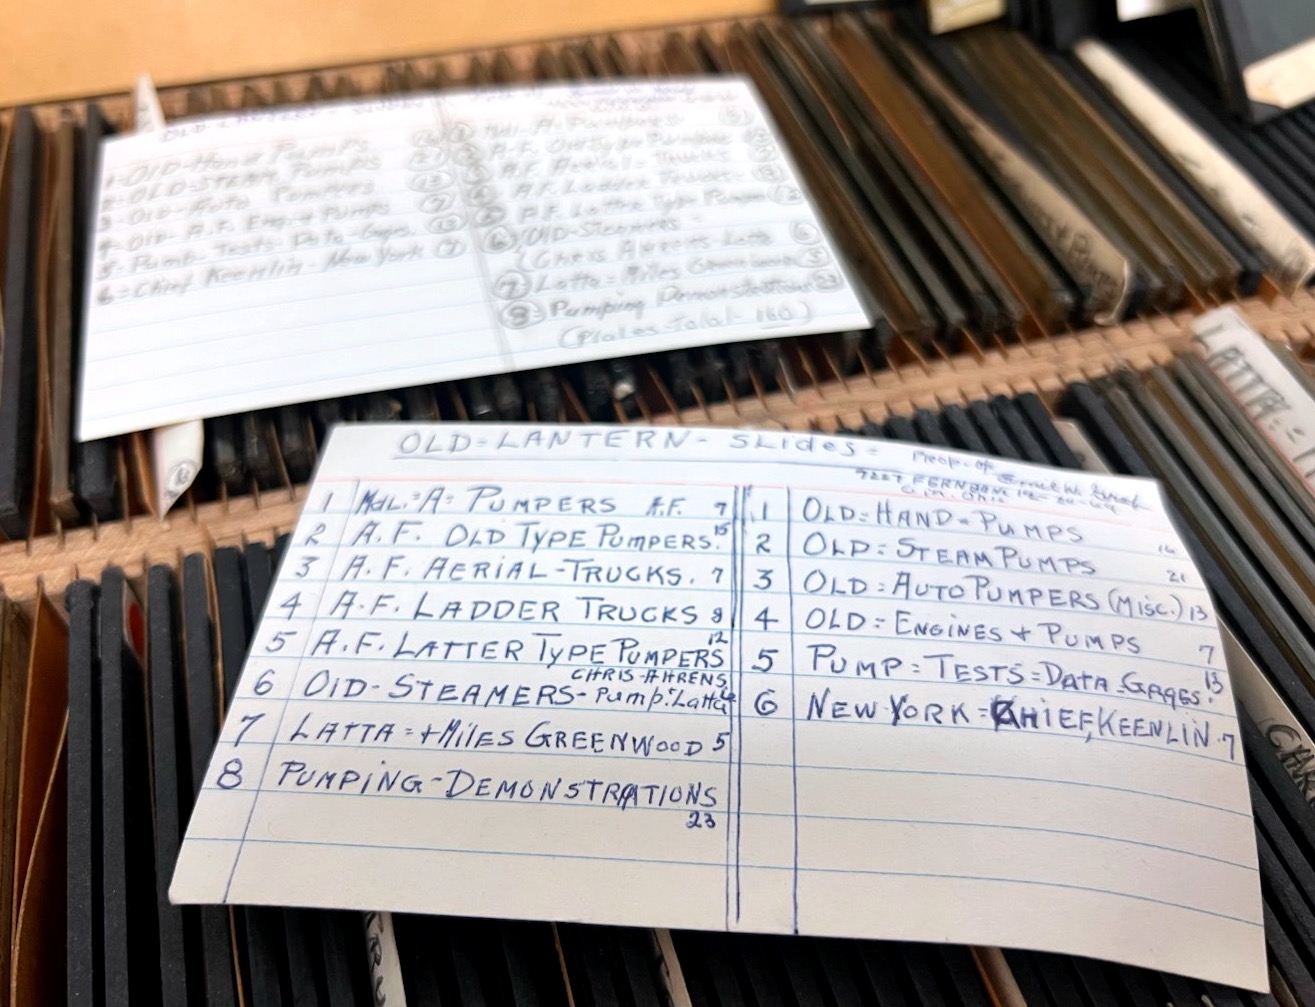 1-OLD-Hand Pumps
2-OLD-STEAM Pumps
3-OLD-Auto Pumpers
4-OLD-A.F. Eng.+ Pumps
5-Pump-Tests-Data-Gages
6-Chief Keenlin-New York 7
A-F. Old Type Pumpers
A.F. Aerial-Trucks
A.F. Ladder Trucks
A.F. Latter Type Pumpers 12
6 OLD-Steamers-
(Chris Ahrens-Latta 6
7-Latta-Miles Greenwood 5
8=Pumping Demonstrations 23
(Plates-Total-160)
LATTA
OLD-LANTERN-SLides=
Prop-of
7227 FERNBANK
Cin. Ohio
1 MdL.=A= PUMPERS A.F. 7
2 A.F. OLD TYPE PUMPERS. 15
3 A.F. AERIAL-TRUCKS. 7
4 A.F. LADDER TRUCKS 8
5 A.F. LATTER TYPE PUMPERS 12
6 OlD-STEAMERS-CHRIS AHRENS Pump.Latta 6
7 LATTA=+MilES GREENWOOD 5
8 PUMPiNG-DEMONSTRATIONS
23
1 OLD=HAND=PUMPS 16
2 OLD=STEAM PUMPS 21
3 OLD=AUTO PUMPERS (Misc.) 13
4 OLD=ENGINES + PUMPS 7
5 PUMP=TESTS=DATA-GAGES. 13
6 NEW YORK=CHIEF, KEENLIN. 7